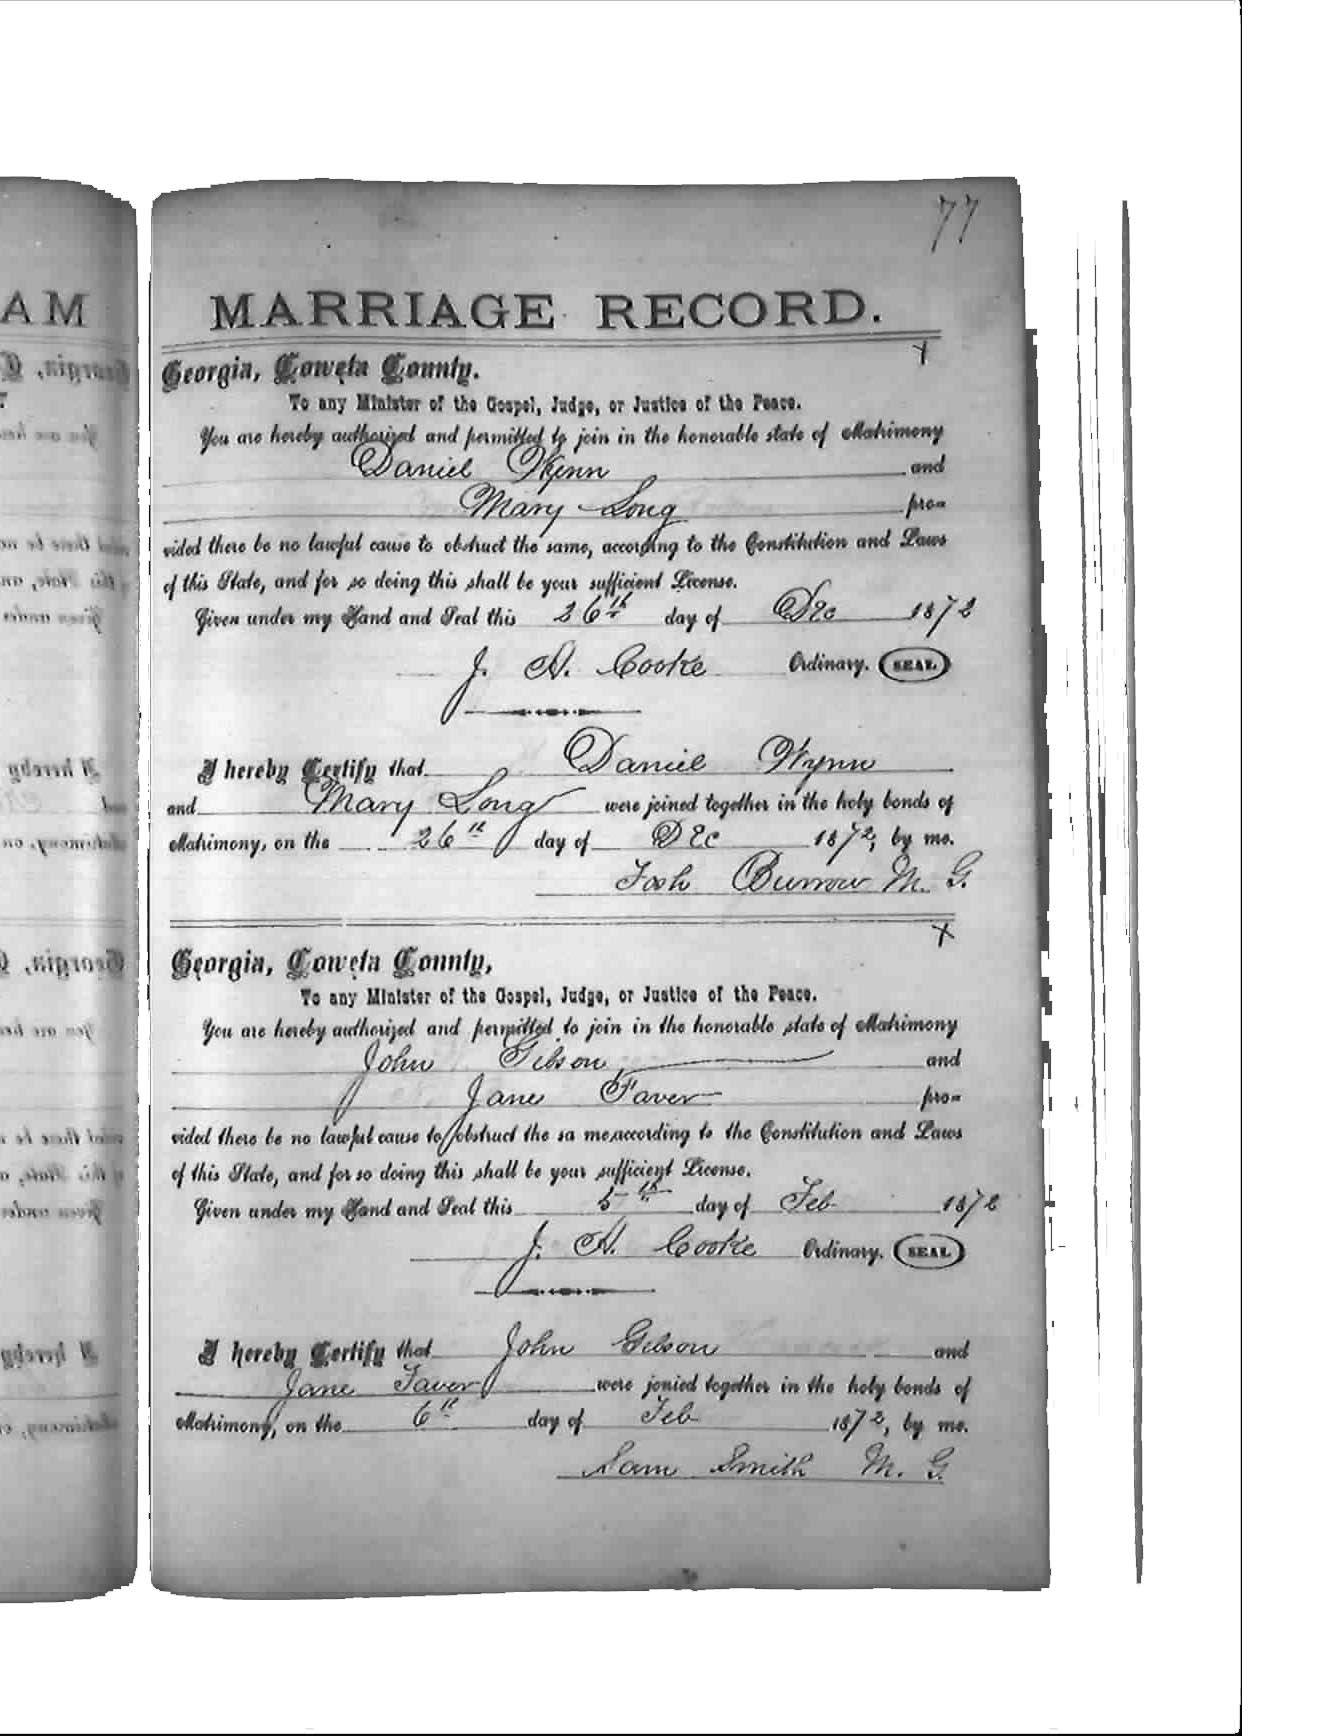 77
AM
MARRIAGE RECORD.
Georgia, Coweta County.
To any Minister of the Gospel, Judge, or Justice of the Peace.
You are hereby authorized and permitted to join in the honorable state of Matrimony
Daniel Wynn and
Mary Long pro-
vided there be no lawful cause to obstruct the same, according to the Constitution and Laws
of this State, and for so doing this shall be your sufficient License.
Given under my Hand and Seal this 26th day of Dec 1872
J. A. Cooke Ordinary. SEAL
I hereby Certify that Daniel Wynn
and Mary Long were joined together in the holy bonds of
Matrimony, on the 26th day of Dec 1872, by me.
Burrow M. G.
Georgia, Coweta County,
To any Minister of the Gospel, Judge, or Justice of the Peace.
You are hereby authorized and permitted to join in the honorable state of Matrimony
John Gibson and
Jane Faver pro-
vided there be no lawful cause to obstruct the sa me,according to the Constitution and Laws
of this State, and for so doing this shall be your sufficient License.
Given under my Hand and Seal this 5th day of Feb 1872
J. A. Cooke Ordinary. SEAL
I hereby Certify that John Gibson and
Jane Faver were jonied together in the holy bonds of
Matrimony, on the 6th day of Feb 1872, by me.
Sam Smith M. G.